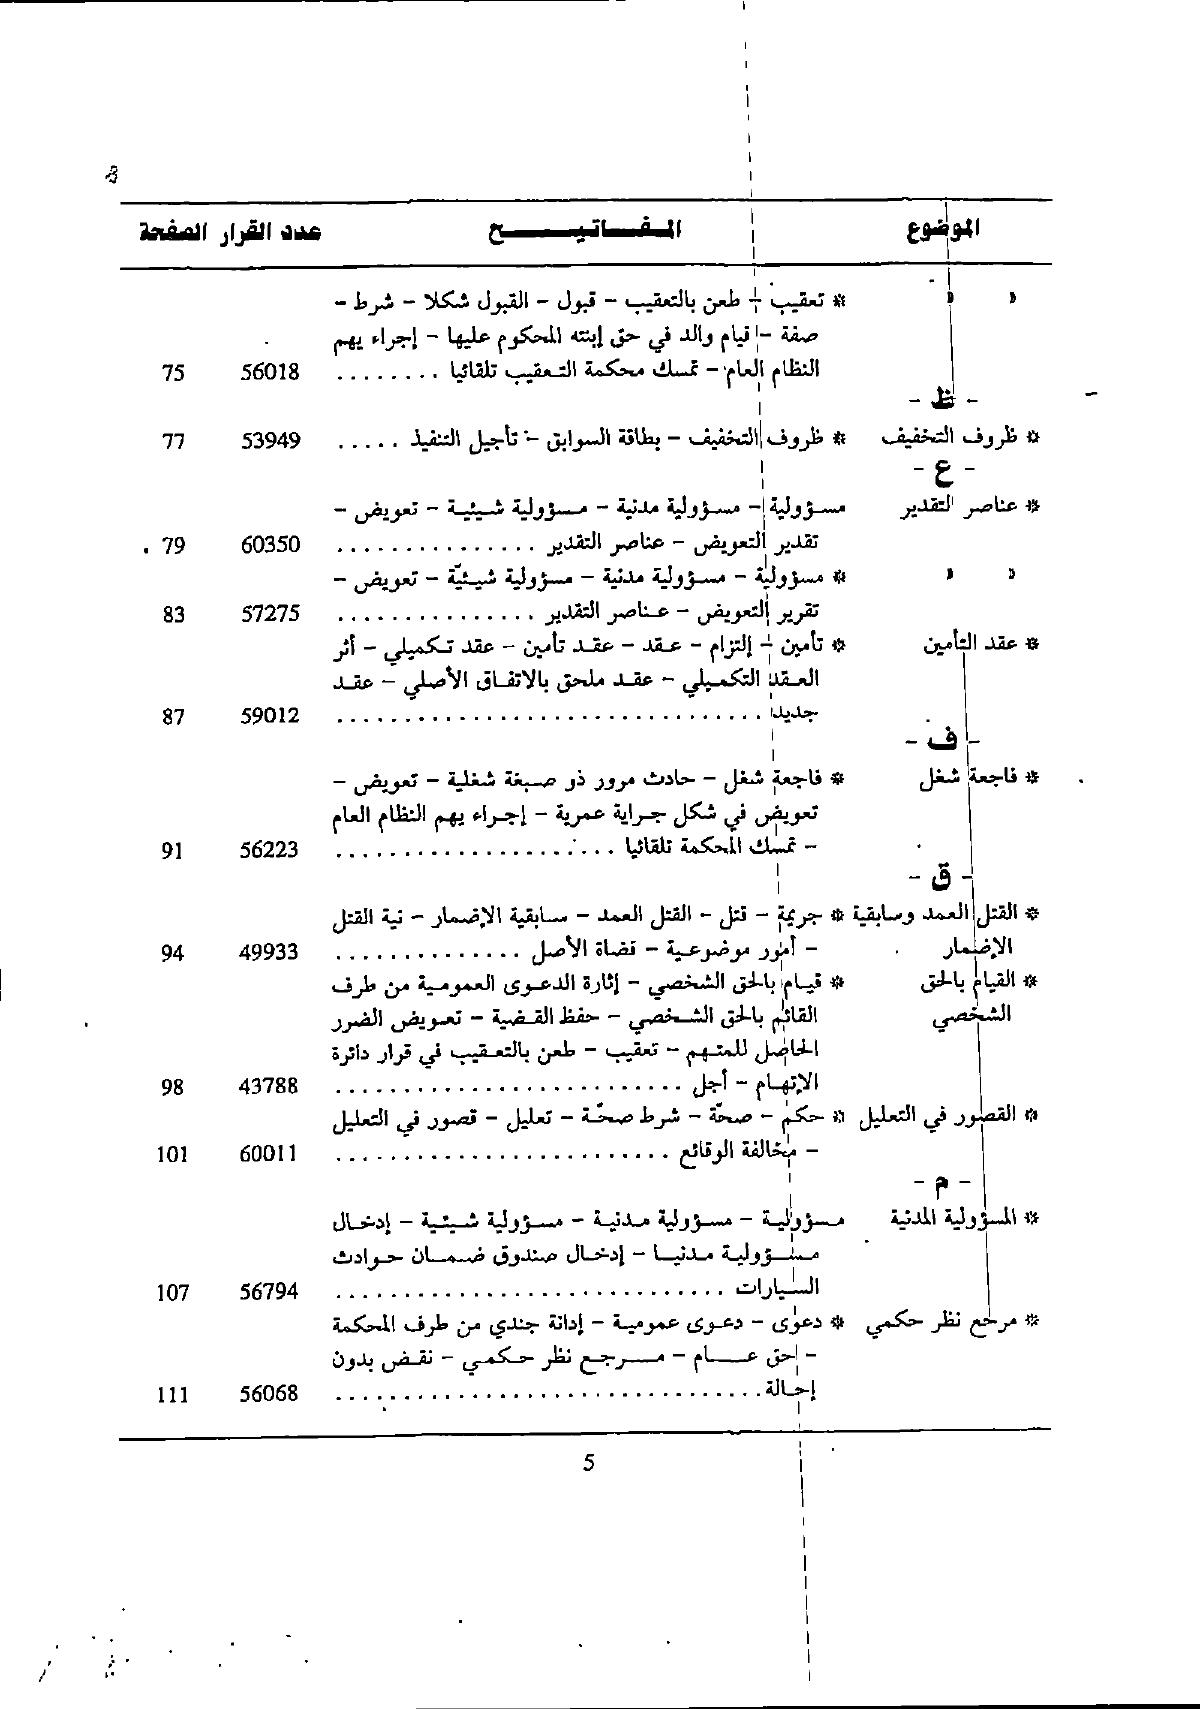 الموضوع المـفـــاتيـــــح عدد القرار الصفحة
" " * تعقيب - طعن بالتعقيب - قبول - القبول شكلا - شرط -
صفة - قيام والد في حق إبنته المحكوم عليها - إجراء يهم
النظام العام - تمسك محكمة التعقيب تلقائيا ........ 56018 75
- ظ -
* ظروف التخفيف * ظروف التخفيف - بطاقة السوابق - تأجيل التنفيذ ..... 53949 77
- ع -
* عناصر التقدير مسؤولية - مسؤولية مدنية - مسؤولية شيئية - تعويض -
تقدير التعويض - عناصر التقدير ............... 60350 79
" " * مسؤولية - مسؤولية مدنية - مسؤولية شيئيّة - تعويض -
تقرير التعويض - عناصر التقدير ............... 57275 83
* عقد التأمين * تأمين - إلتزام - عقد - عقد تأمين - عقد تكميلي - أثر
العقد التكميلي - عقد ملحق بالاتفاق الأصلي - عقد
جديد ................................ 59012 87
- ف -
* فاجعة شغل * فاجعة شغل - حادث مرور ذو صبغة شغلية - تعويض -
تعويض في شكل جراية عمرية - إجراء يهم النظام العام
- تمسك المحكمة تلقائيا ..................... 56223 91
- ق -
* القتل العمد وسابقية * جريمة - قتل - القتل العمد - سابقية الإضمار - نية القتل
الإضمار - أمور موضوعية - قضاة الأصل .............. 49933 94
* القيام بالحق * قيام بالحق الشخصي - إثارة الدعوى العمومية من طرف
الشخصي القائم بالحق الشخصي - حفظ القضية - تعويض الضرر
الحاصل للمتهم - تعقيب - طعن بالتعقيب في قرار دائرة
الإتهام - أجل .......................... 43788 98
* القصور في التعليل * حكم - صحّة - شرط صحّة - تعليل - قصور في التعليل
- مخالفة الوقائع ......................... 60011 101
- م -
* المسؤولية المدنية مسؤولية - مسؤولية مدنية - مسؤولية شيئية - إدخال
مسؤولية مدنيا - إدخال صندوق ضمان حوادث
السيارات ............................. 56794 107
* مرجع نظر حكمي * دعوى - دعوى عمومية - إدانة جندي من طرف المحكمة
- حق عـــام - مـرجع نظر حكمي - نقض بدون
إحالة................................ 56068 111
5